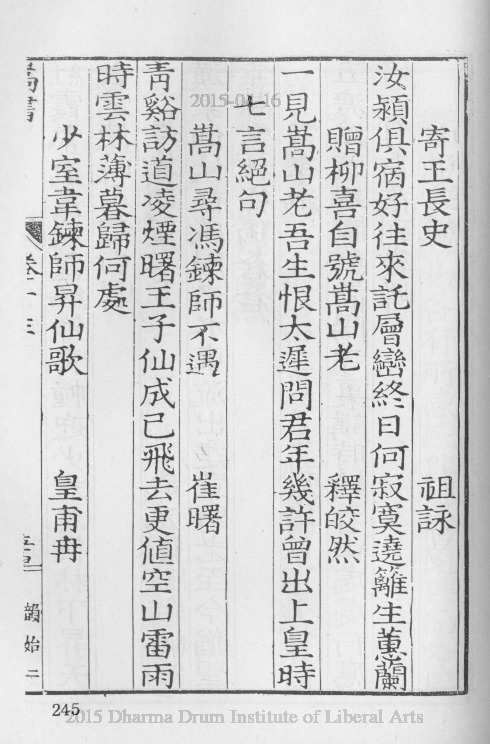 寄王長史　祖詠
汝潁俱宿好往來託層巒終日何寂寞遶籬生蕙蘭
贈柳喜自號嵩山老　釋皎然
一見嵩山老吾生恨太遲問君年幾許曾出上皇時
七言絕句
嵩山尋馮鍊師不遇　崔曙
青谿訪道凌煙曙王子仙成已飛去更値空山雷雨
時雲林薄暮歸何處
少室韋鍊師昇仙歌　皇甫冉
嵩書
卷十三
韻始二
2015-04-16
245
2015 Dharma Drum Institute of Liberal Arts